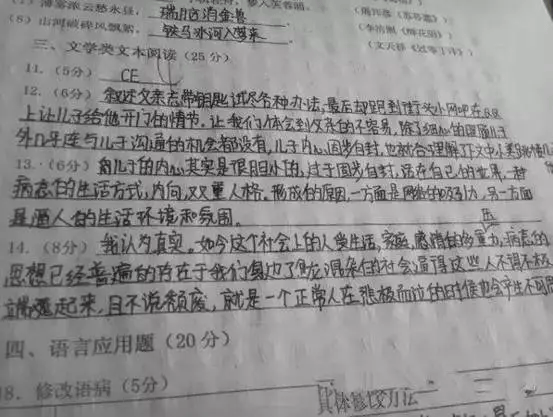 (7) 薄雾浓云愁永昼，瑞脑消金兽
(8) 山河破碎风飘絮，铁马冰河入梦来
三、文学类文本阅读（25分）
11.（5分） CE
12.（6分） 叙述父亲忘带钥匙试尽各种办法，最后却跑到街头小网吧在QQ
上让儿子给他开门的情节，让我们体会到父亲的不容易，除了细心的照顾儿子
外几乎连与儿子沟通的机会都没有，儿子内心固步自封，也就
13.（6分） 儿子的内心其实是很胆小的，过于固步自封，活在自己的世界，一种
病态的生活方式，内向，双重人格。形成的原因，一方面是网络的吸引力，另一方面
是逼人的生活环境和氛围。
14.（8分） 我认为真实。如今这个社会上的人受生活，家庭，感情的多重压力，病态的
思想已经普遍的存在于我们身边了
混杂的社会逼得这些人不得不极
端
起来，且不说颓废，就是一个正常人在
的时候也会产生不同
四、语言应用题（20分）
18. 修改语病（5分）
具体修改方法